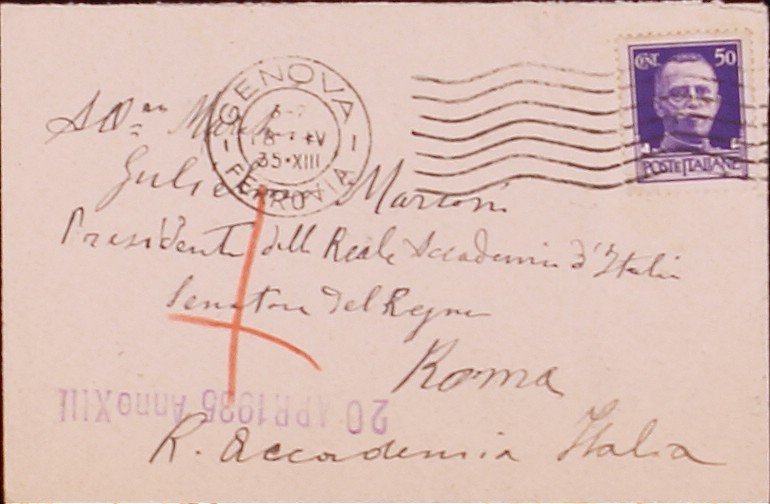 CENT. 50
POSTE ITALIANE
GENOVA
18 IV
35·XIII
FERROVIA
Marconi
Presidente della Reale Accademia d'Italia
Senatore del Regno
Roma
20 APR 1935 Anno XIII
R. Accademia Italia